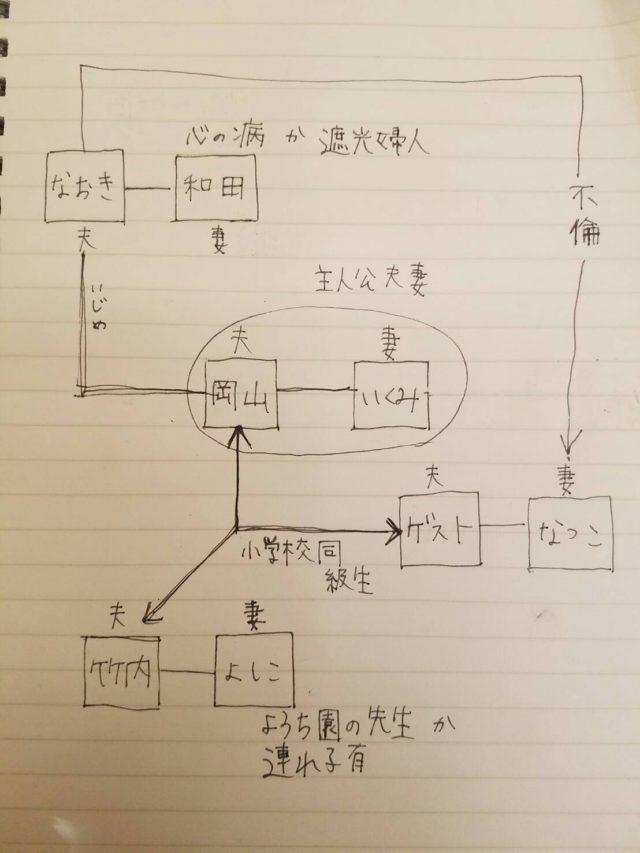 心の病 か 遮光婦人
なおき
和田
夫
妻
不倫
いじめ
主人公夫妻
夫
妻
岡山
いくみ
夫
妻
ゲスト
なつこ
小学校同
級生
夫
妻
竹内
よしこ
ようち園の先生 か
連れ子有